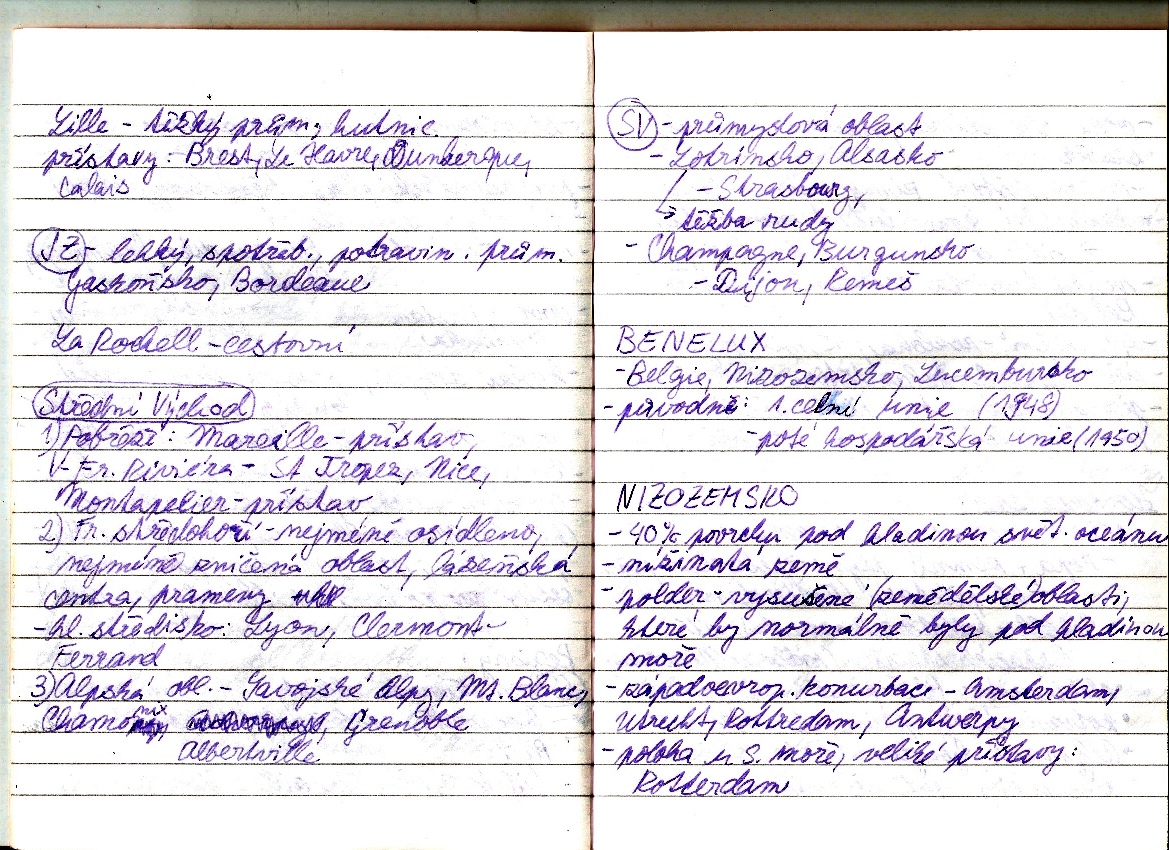 Lille - těžký prům, hutnic.
přístavy: Brest, Le Havre, Dunkerque,
Calais
JZ - lehký, spotřeb., potravin. prům.
Gaskoňsko, Bordeaue
La Rochell - cestovní
Střední Východ
1) Pobřeží: Mareille - přístav,
- Fr. Riviéra - St Tropez, Nice,
Montapelier - přístav
2) Fr. středohoří - nejméně osídleno,
nejméně zničená oblast, lázeňská
centra, prameny
- hl. středisko: Lyon, Clermont-
Ferrand
3) Alpská obl. - Savojské Alpy, Mt. Blanc,
Chamonix, Grenoble
Albertville
SV - průmyslová oblast
- Lotrinsko, Alsasko
- Strasbourg,
→ těžba rudy
- Champagne, Burgunsko
- Dijon, Remeš
BENELUX
- Belgie, Nizozemsko, Lucembursko
- původně: 1. celní unie (1948)
- poté hospodářská unie (1950)
NIZOZEMSKO
- 40% povrchu pod hladinou svět. oceánu
- nížinatá země
- polder - vysušené (zemědělské) oblasti,
které by normálně byly pod hladinou
moře
- západoevrop. konurbace - Amsterdam,
Utrecht, Rottredam, Antverpy
- poloha u S. moře, veliké přístavy:
Rotterdam